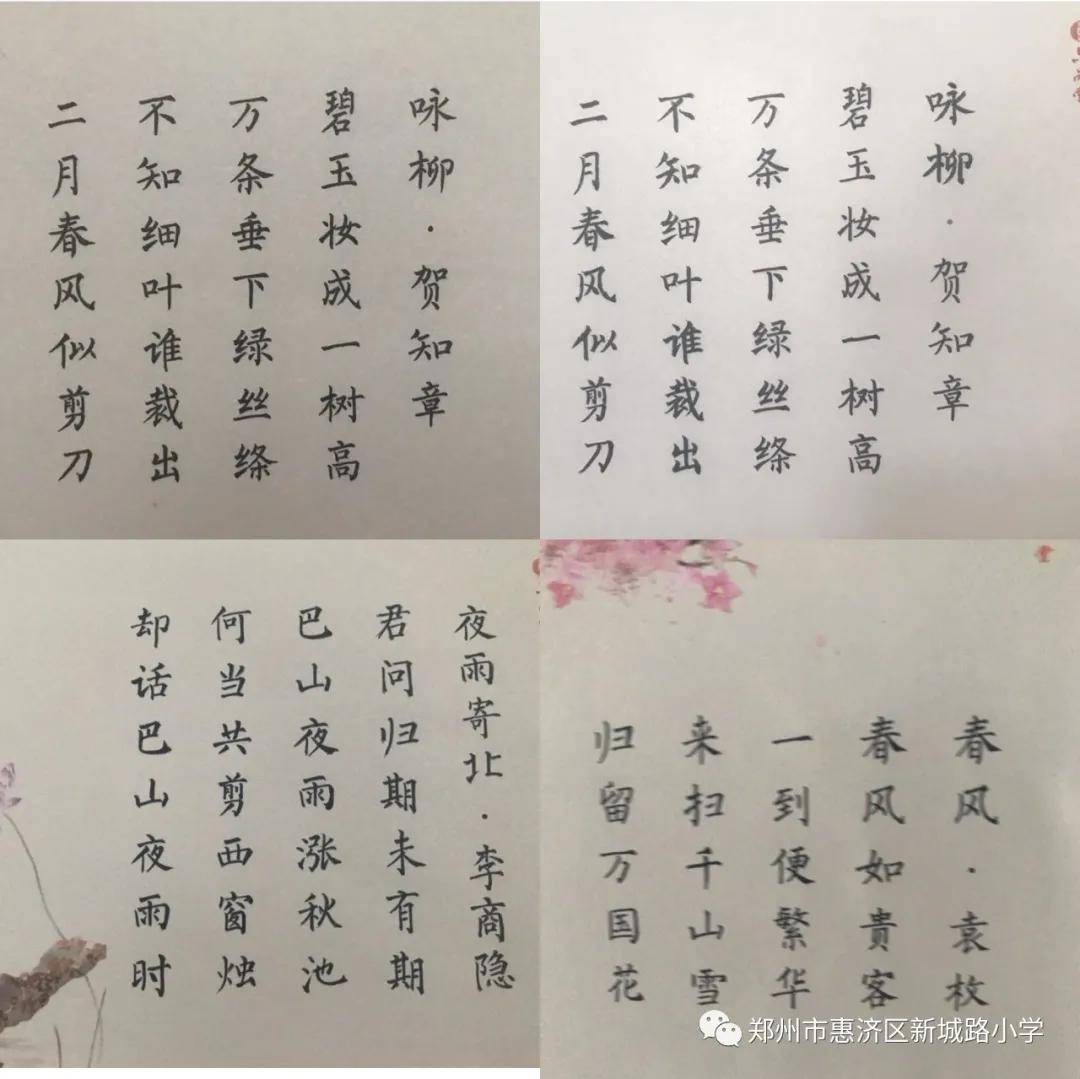 咏柳·贺知章
碧玉妆成一树高
万条垂下绿丝绦
不知细叶谁裁出
二月春风似剪刀
咏柳·贺知章
碧玉妆成一树高
万条垂下绿丝绦
不知细叶谁裁出
二月春风似剪刀
夜雨寄北·李商隐
君问归期未有期
巴山夜雨涨秋池
何当共剪西窗烛
却话巴山夜雨时
春风·袁枚
春风如贵客
一到便繁华
来扫千山雪
归留万国花
郑州市惠济区新城路小学